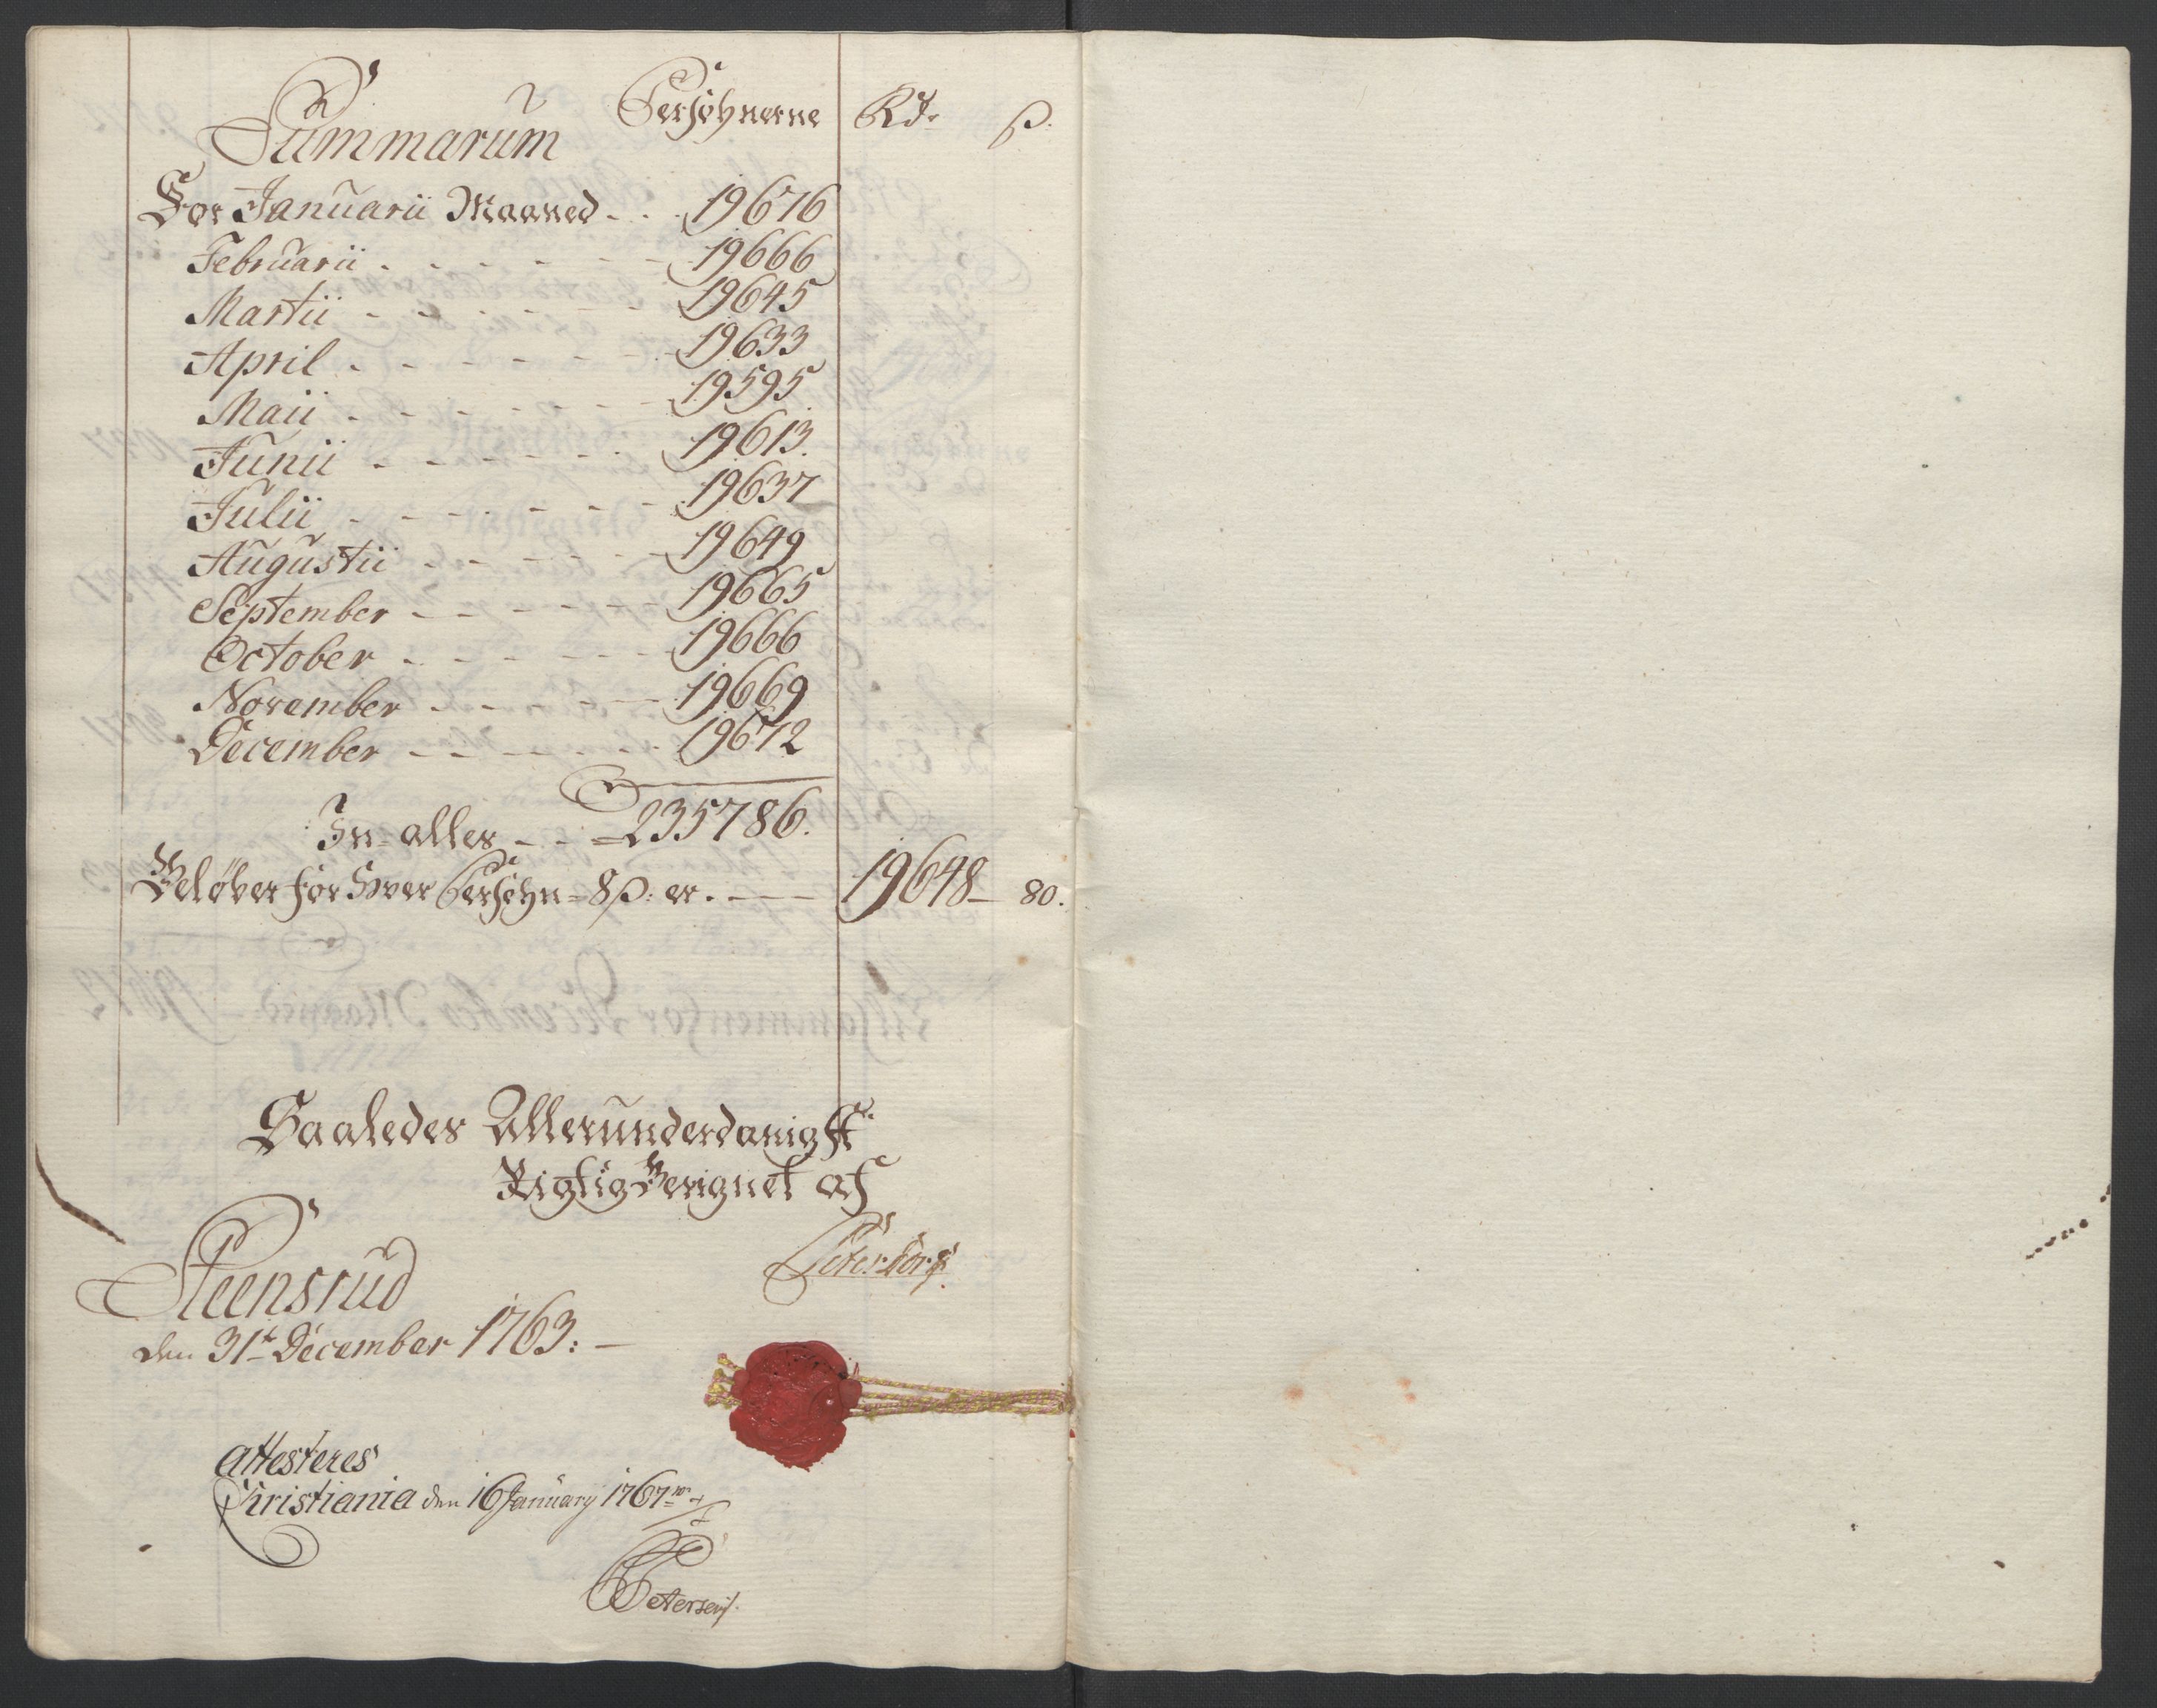 Summarum Persohnerne Rd. ß.
For Januarii Maaned - - 19676
Februarii - - - - - - 19666
Martii - - - - - - 19645
April - - - - - - 19633
Maii - - - - - - 19595
Junii - - - - - - 19613.
Julii - - - - - - 19637
Augustii - - - - - 19649
September - - - - - 19665
October - - - - - - 19666
November - - - - - 19669
December - - - - - 19672
In alles - - = 235786.
Beløber for Hver Persohn = 8ß: er . - - - 19648 - 80.
Saaledes Allerunderdanigst
Rigtig Berignet af
Peterborg
Steensrud
den 31te December 1763: -
attesteres
Christiania den 16 January 1767
Petersen